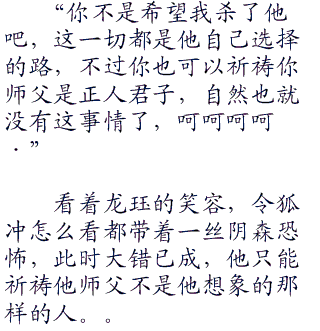 “你不是希望我杀了他
吧，这一切都是他自己选择
的路，不过你也可以祈祷你
师父是正人君子，自然也就
没有这事情了，呵呵呵呵
·”
看着龙珏的笑容，令狐
冲怎么看都带着一丝阴森恐
怖，此时大错已成，他只能
祈祷他师父不是他想象的那
样的人。。